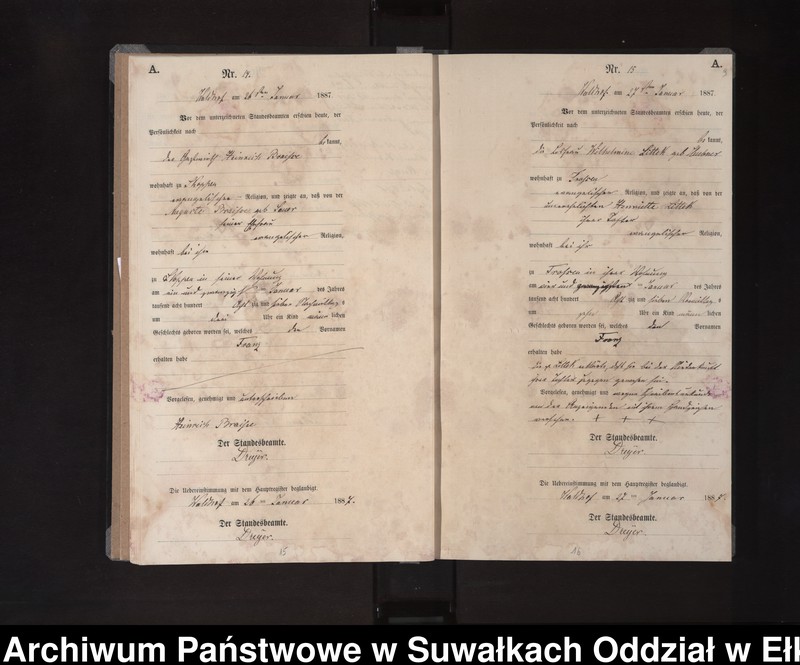 A.
Nr. 14.
Waldhof am 26ten Januar 1887.
Vor dem unterzeichneten Standesbeamten erschien heute, der
Persönlichkeit nach
be kannt,
der Heinrich Braise
wohnhaft zu Skoppen
evangelischer Religion, und zeigte an, daß von der
Auguste Braise geb.
seiner Ehefrau
evangelischer Religion,
wohnhaft bei ihm
zu Skoppen in seiner Wohnung
am ein und zwanzigsten Januar des Jahres
tausend acht hundert achtzig und sieben Nachmittags
um drei Uhr ein Kind männlichen
Geschlechts geboren worden sei, welches den Vornamen
Franz
erhalten habe
Vorgelesen, genehmigt und unterschrieben
Heinrich Braise
Der Standesbeamte.
Dreyer.
Die Uebereinstimmung mit dem Hauptregister beglaubigt.
Waldhof am 26ten Januar 1887.
Der Standesbeamte.
Dreyer.
15
A.
Nr. 15
Waldhof am 27ten Januar 1887.
Vor dem unterzeichneten Standesbeamten erschien heute, der
Persönlichkeit nach
be kannt,
die Wilhelmine Littek geb.
wohnhaft zu
evangelischer Religion, und zeigte an, daß von der
unverehelichten Henriette Littek
ihrer Tochter
evangelischer Religion,
wohnhaft bei ihr
zu in ihrer Wohnung
am vier und zwanzigsten Januar des Jahres
tausend acht hundert achtzig und sieben Vormittags
um Uhr ein Kind männlichen
Geschlechts geboren worden sei, welches den Vornamen
Franz
erhalten habe
die p. Littek erklärte, daß sie bei der Niederkunft
ihrer Tochter zugegen gewesen sei.
Vorgelesen, genehmigt und wegen Schreibensunkunde
von der Anzeigenden mit ihrem Handzeichen
versehen. + + +
Der Standesbeamte.
Dreyer.
Die Uebereinstimmung mit dem Hauptregister beglaubigt.
Waldhof am 27ten Januar 1887.
Der Standesbeamte.
Dreyer.
16
Archiwum Państwowe w Suwałkach Oddział w Ełk